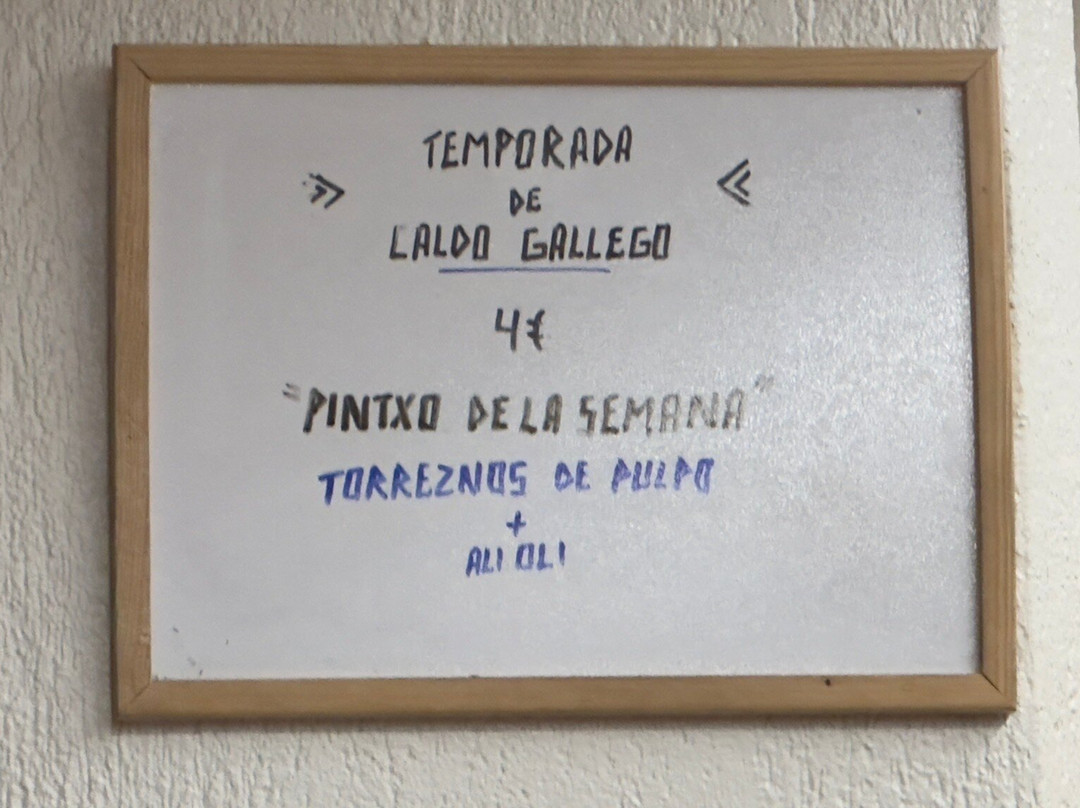 TEMPORADA
» DE «
CALDO GALLEGO
4€
"PINTXO DE LA SEMANA"
TORREZNOS DE PULPO
+
ALI OLI